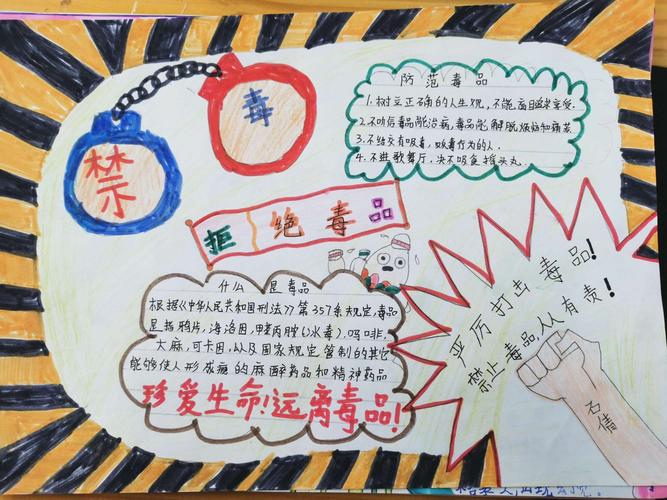 禁
毒
防范毒品
1.树立正确的人生观,不能盲目追求享受.
2.不听信毒品能治病,毒品能解脱烦恼和痛苦
3.不结交有吸毒,贩毒行为的人.
4.不进歌舞厅,决不吸食摇头丸.
拒绝毒品
什么是毒品
根据《中华人民共和国刑法》第357条规定,毒品
是指鸦片,海洛因,甲苯丙胺(冰毒).吗啡.
大麻,可卡因,以及国家规定管制的其它
能够使人形成瘾的麻醉药品和精神药品
珍爱生命!远离毒品!
严厉打击毒品!
禁止毒品,人人有责!
石倩